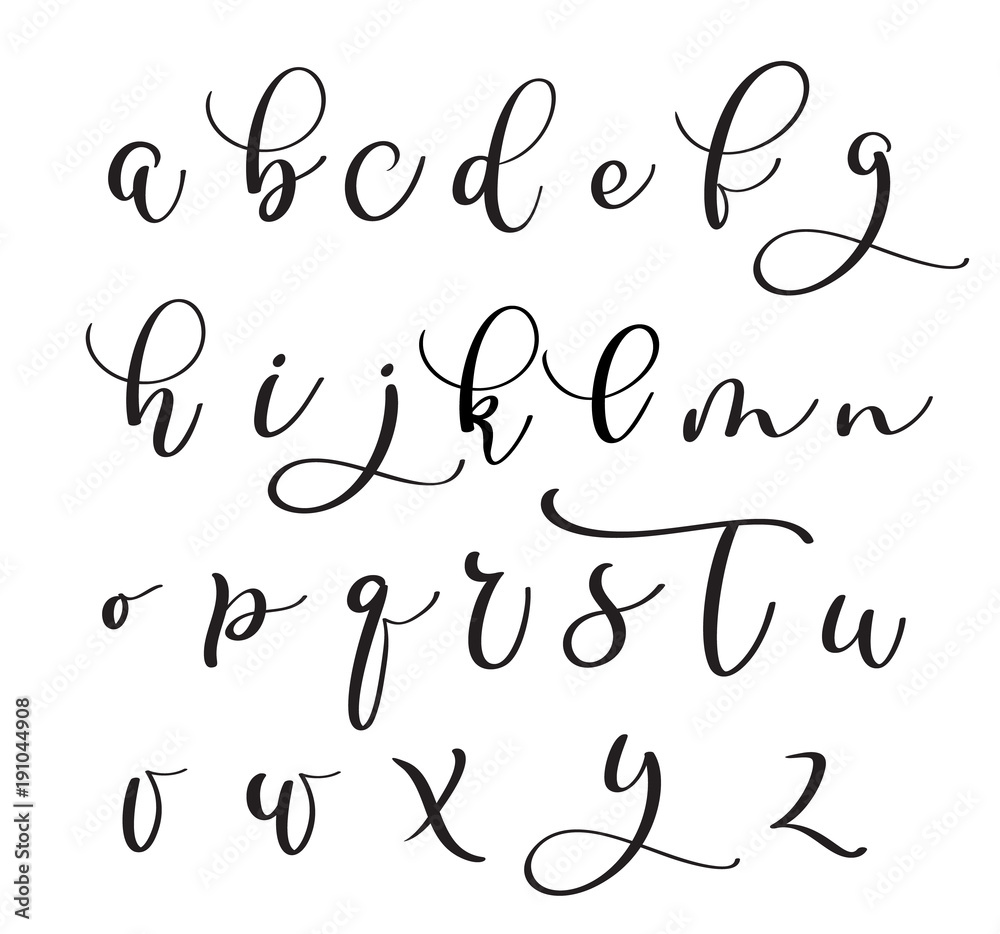 a b c d e f g
h i j k l m n
o p q r s t u
v w x y z
Adobe Stock | #191044908